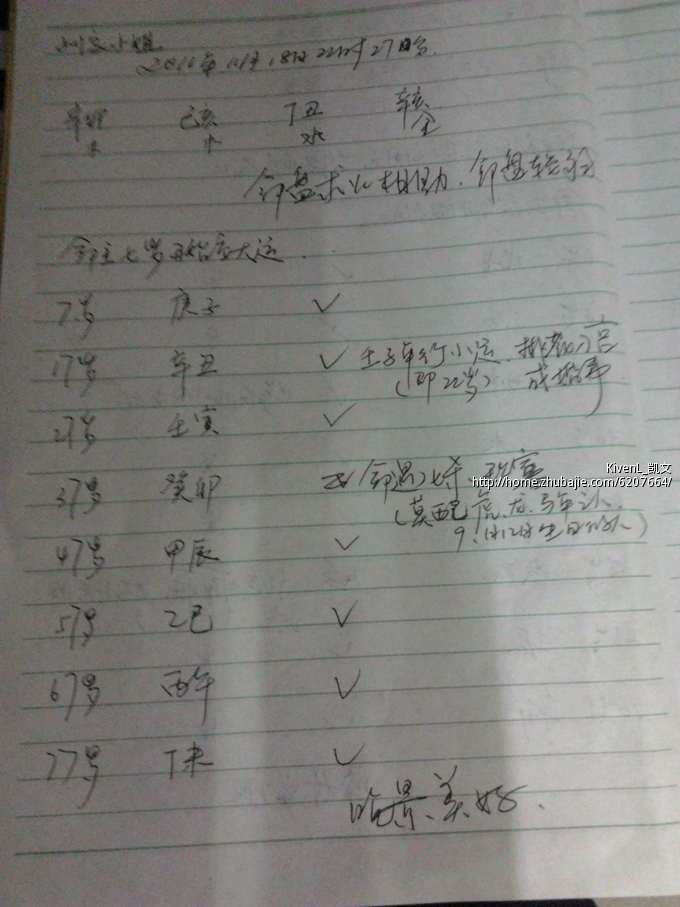 小姐
2011年11月18日22时27分
辛卯 己亥 丁丑 辛亥
木 水 金
命盘求火相助.命盘轻弱
命主七岁开始应大运..
7岁 庚子 ✓
17岁 辛丑 ✓ 壬子年行小运
(即22岁) 成婚事
27岁 壬寅 ✓
37岁 癸卯 命遇
(莫配虎、龙、马年之人、
9、11、12月生日的人)
47岁 甲辰 ✓
57岁 乙巳 ✓
67岁 丙午 ✓
77岁 丁未 ✓
晚景美好.
KivenL_凯文
http://home.zhubajie.com/6207664/